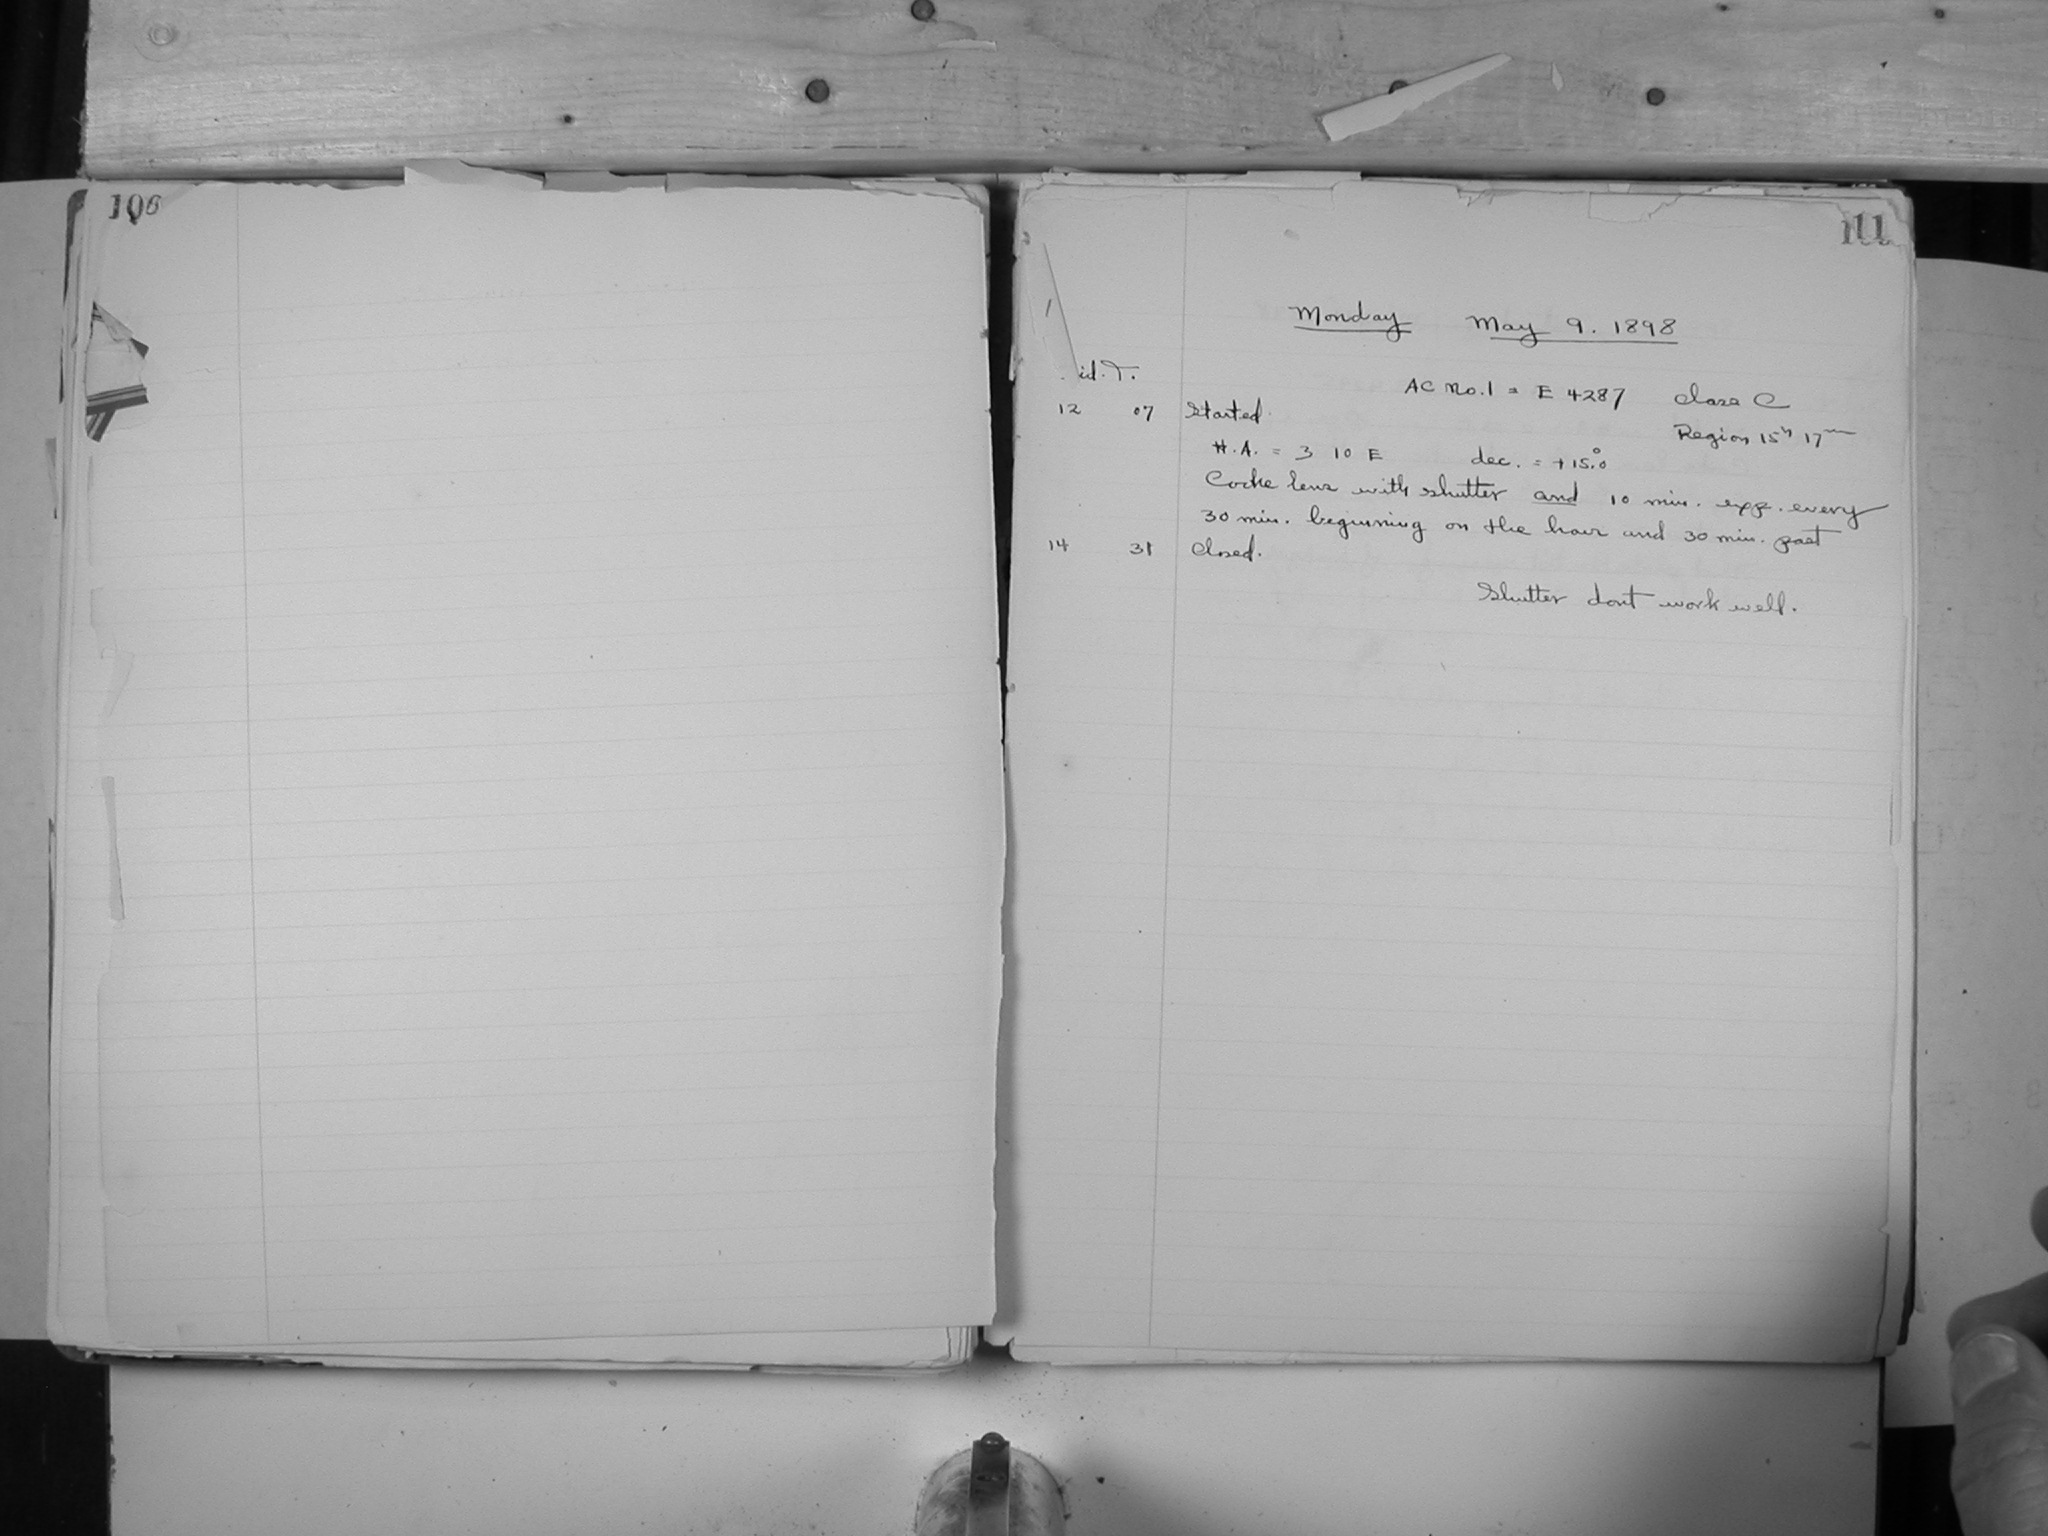 106
111
Monday May 9. 1898
id. T.
AC No. 1 = E 4287 Class C
12 07 Started.
Region 15h 17m
H.A. = 3 10 E dec. = +15.°0
Cooke lens with shutter and 10 min. exp. every
30 min. beginning on the hour and 30 min. past
14 31 Closed.
Shutter dont work well.